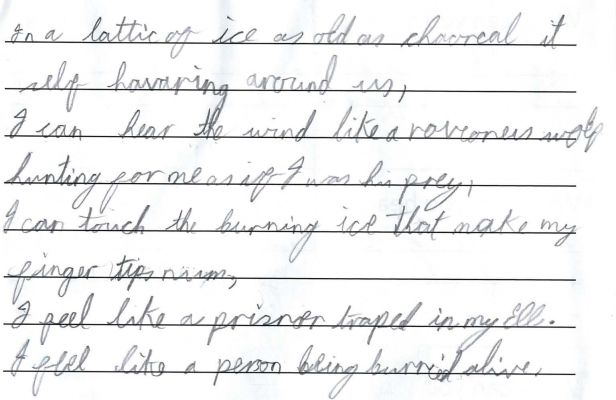 In a lattic of ice as old as chaoreal it
self havaring around us,
I can hear the wind like a rovconeus wolf
hunting for me as if I was his prey,
I can touch the burning ice that make my
finger tips nuim,
I feel like a prisnor traped in my Ell.
I feel like a person being burried alive,